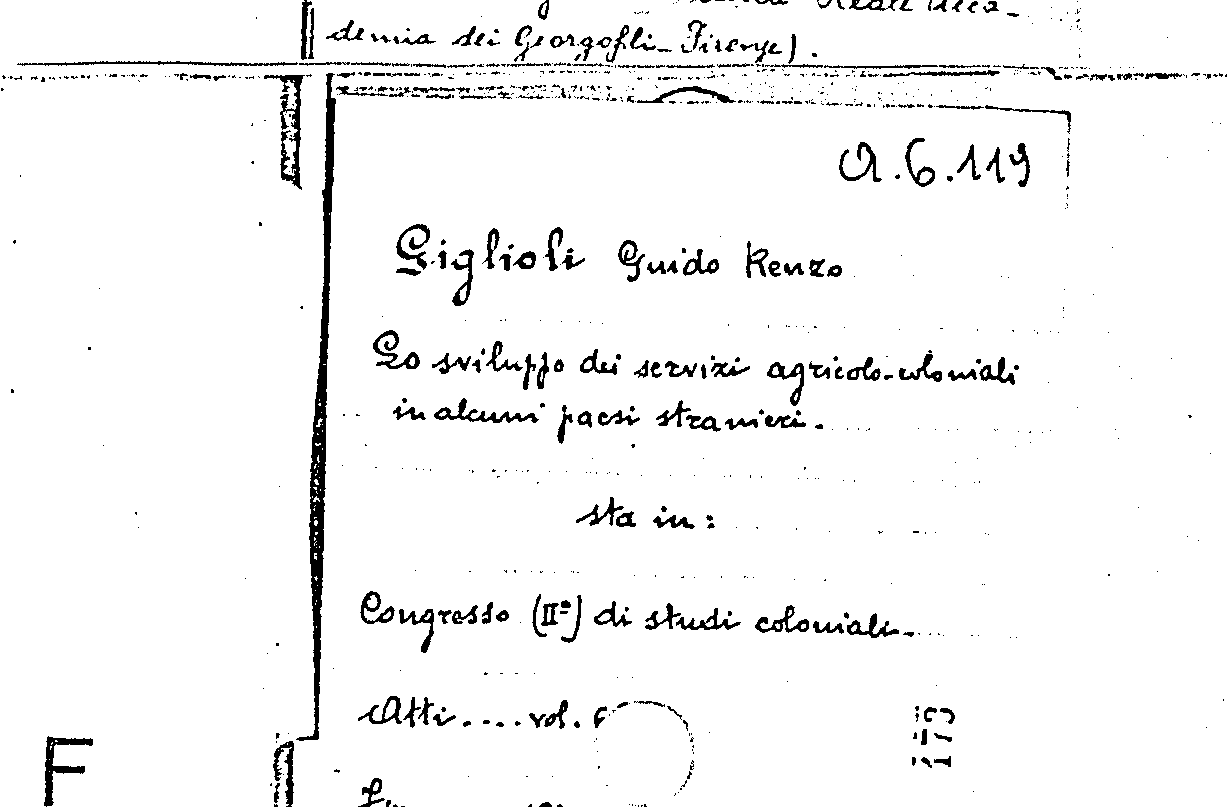 Reale Acca-
demia dei Georgofili-Firenze).
A.6.119
Giglioli Guido Renzo
Lo sviluppo dei servizi agricolo-coloniali
in alcuni paesi stranieri.
sta in:
Congresso (IIº) di studi coloniali.
Atti.... vol. 6
F